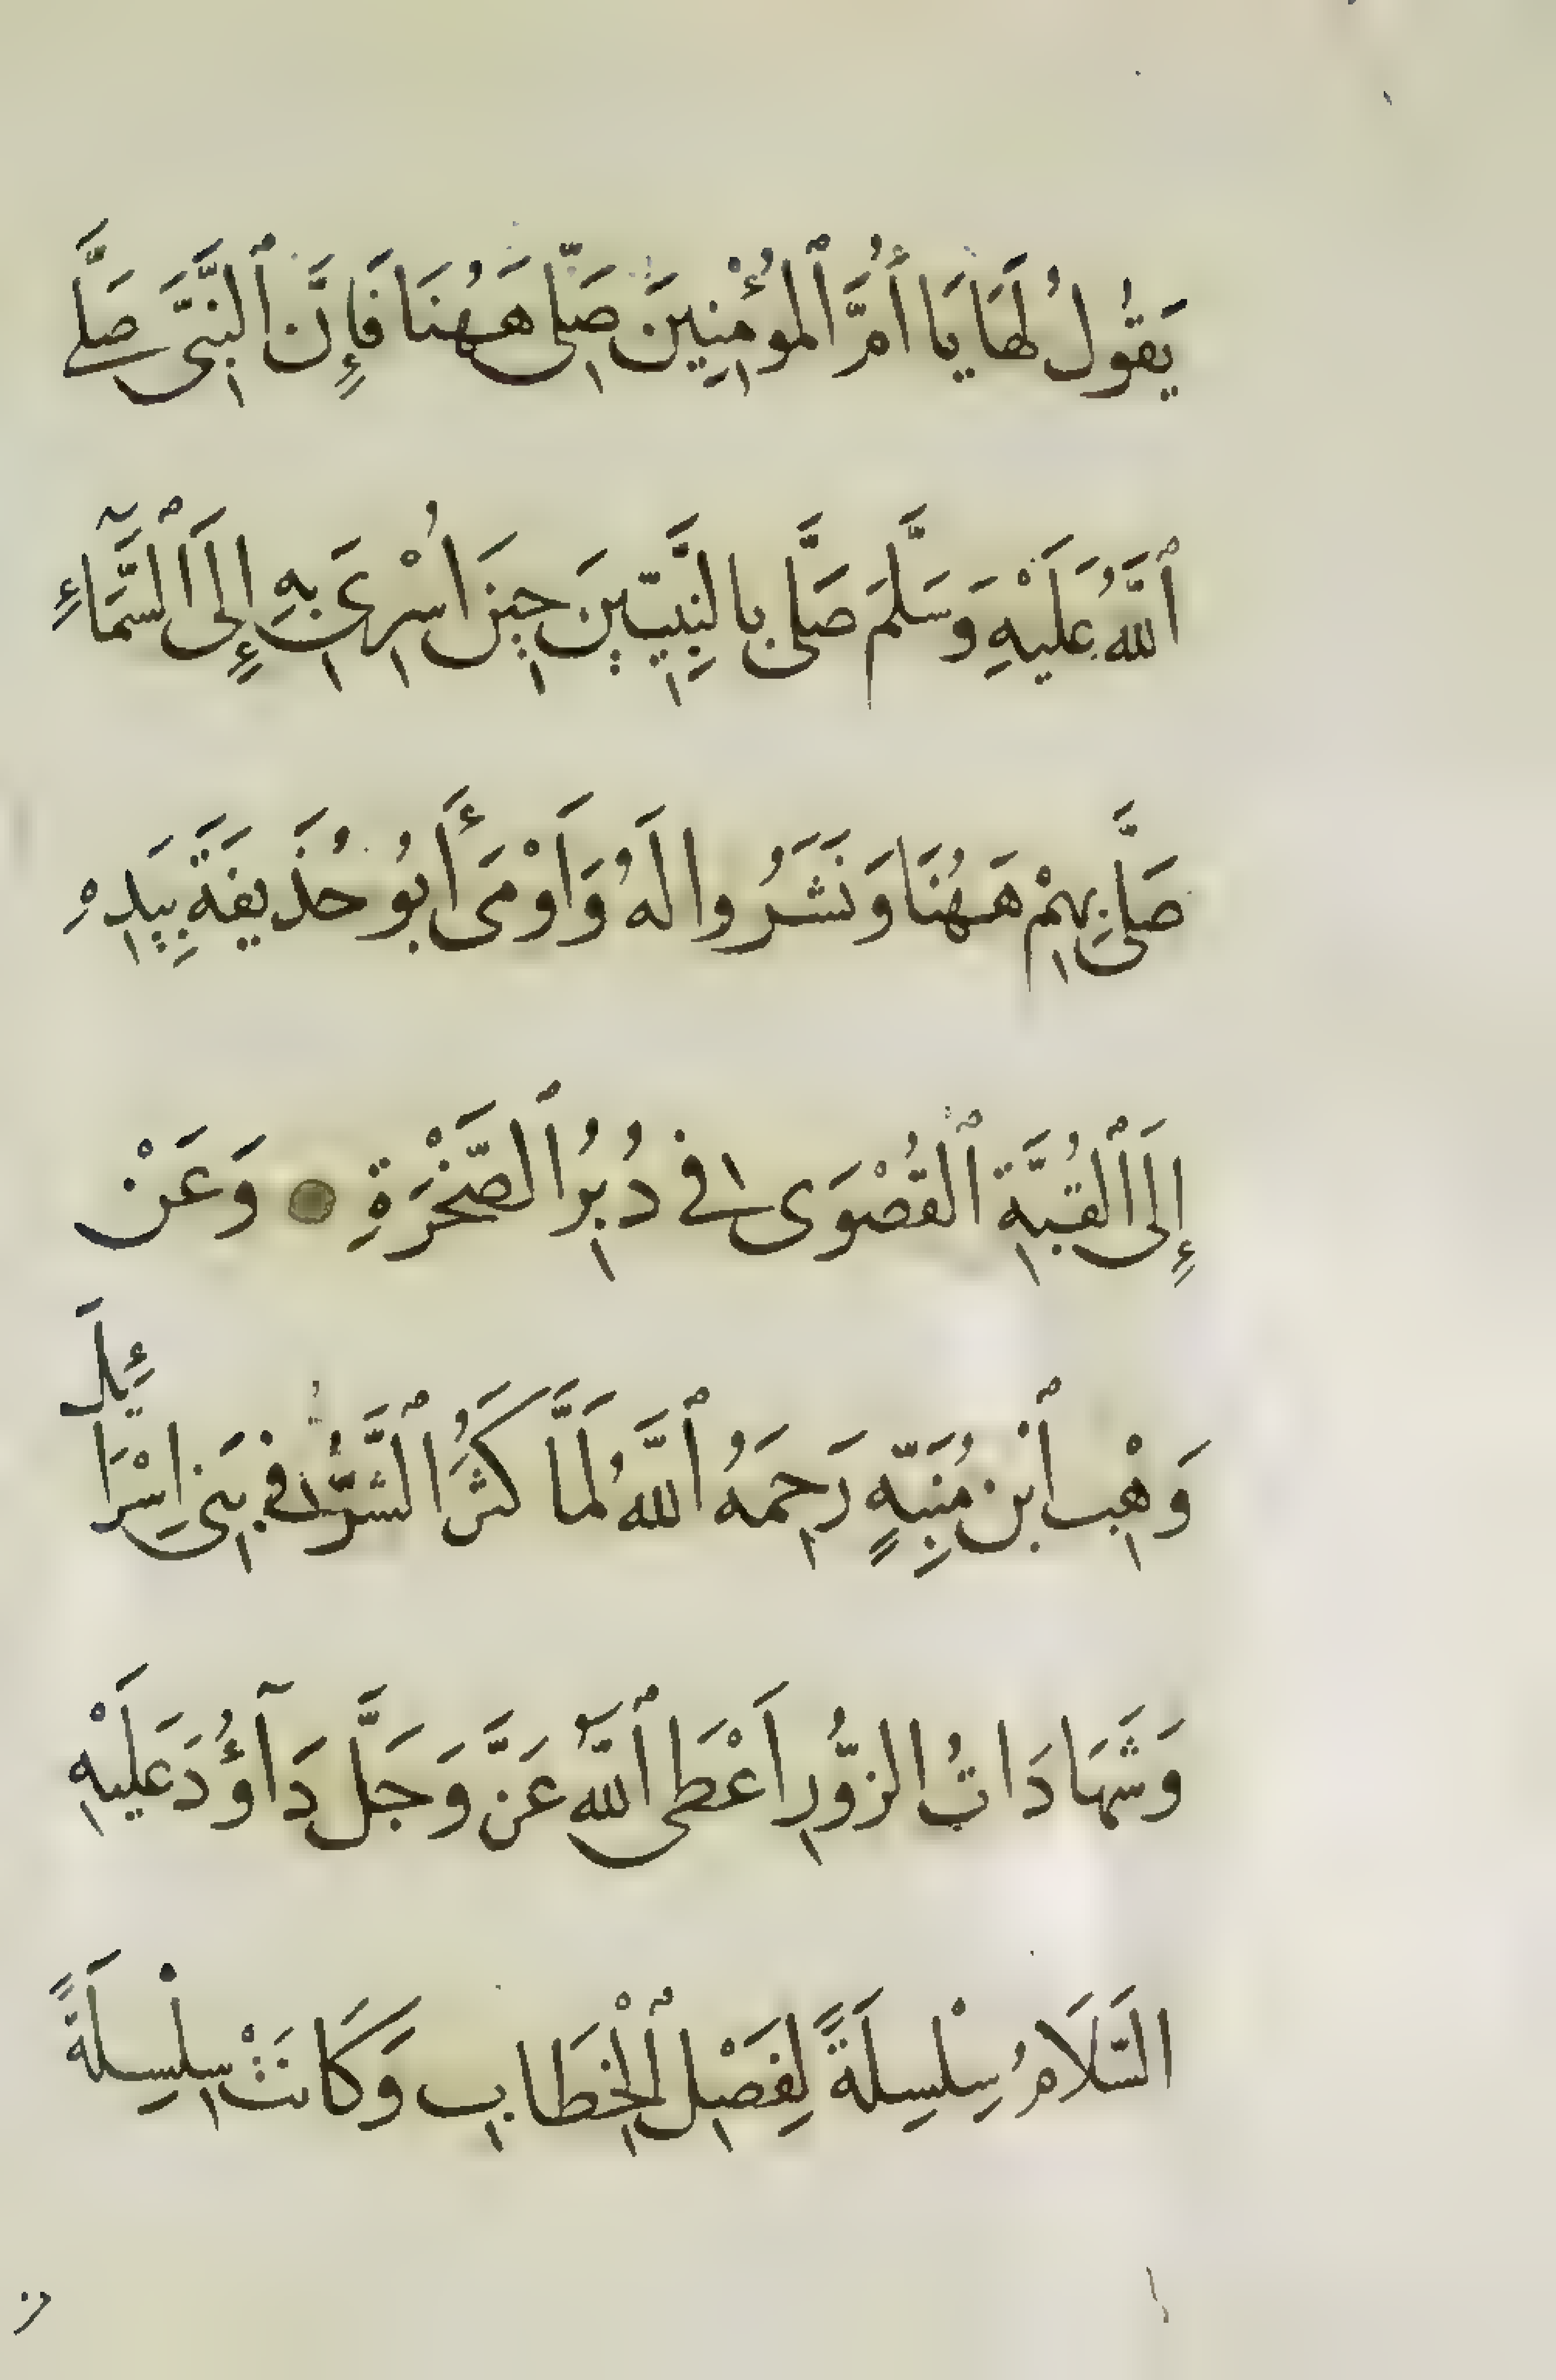 يَقُولُ لَهَا يَا أُمَّ ٱلْمُؤْمِنِينَ صَلِّى هَهُنَا فَإِنَّ ٱلنَّبِىَّ صَلَّى
ٱللَّهُ عَلَيْهِ وَسَلَّمَ صَلَّى بِالنَّبِيِّينَ حِينَ اُسْرِىَ بِهِ إِلَى ٱلسَّمَآءِ
صَلَّى بِهِمْ هَهُنَا وَنَشَرُوا لَهُ وَاَوْمَى أَبُو حُذَيفَةَ بِيَدِهِ
إِلَى ٱلْقُبَّةِ ٱلْقُصْوَى فِى دُبُرِ ٱلصَّخْرَةِ ● وَعَنْ
وَهْبِ ٱبْنِ مُنَبِّهٍ رَحِمَهُ ٱللَّهُ لَمَّا كَثُرَ ٱلشَّرُّ فِى بَنِى اِسْرَائِيلَ
وَشَهَادَاتُ الزُّورِ اَعْطَى ٱللَّهُ عَزَّ وَجَلَّ دَآؤُدَ عَلَيْهِ
السَّلَامُ سِلْسِلَةً لِفَصْلِ ٱلْخِطَابِ وَكَانَتْ سِلْسِلَةً